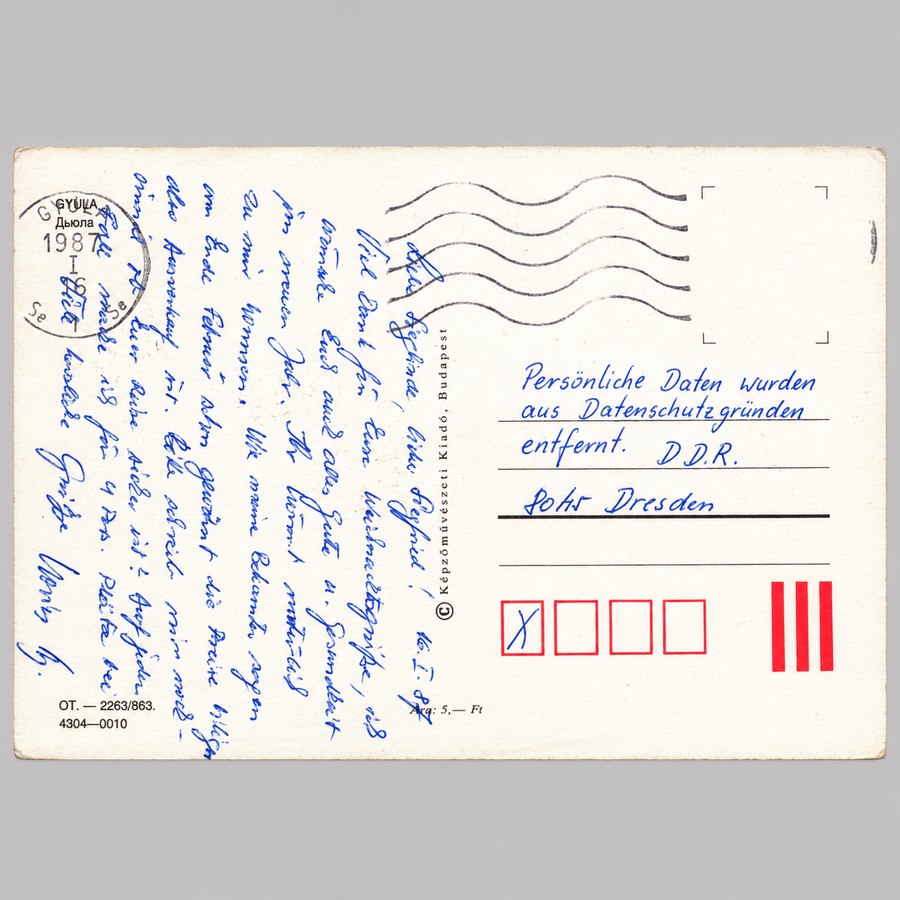 Liebe Sieglinde, lieber Siegfried! 16. I. 87
Viel Dank für Eure Weihnachtsgrüße, ich
wünsche Euch auch alles Gute u. Gesundheit
im neuen Jahr. Ihr könnt natürlich
zu mir kommen. Wie meine Bekannten sagen
am Ende Februar schon gewöhnt die Preise billiger
also Ausverkauf ist. Bitte schreib mir noch-
einmal ob Euer Reise sicher ist? Auf jeden
Fall mache ich für 4 Pers. Plätze bei
Viele herzliche Grüße
GYULA
GYULA
Дьюла
1987
I
16
Persönliche Daten wurden
aus Datenschutzgründen
entfernt. D.D.R.
Dresden
X
© Képzőművészeti Kiadó, Budapest
Ára: 5,— Ft
OT. — 2263/863.
4304—0010